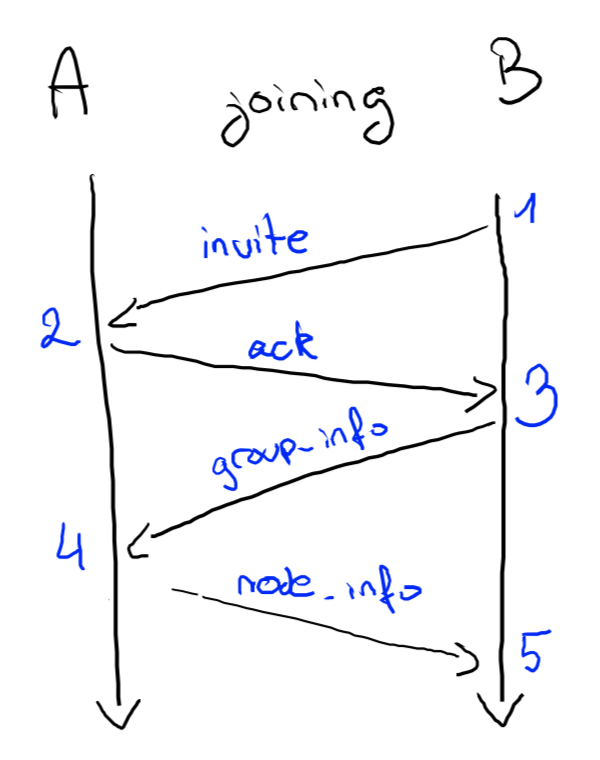 A joining B
1
invite
2
ack
3
group_info
4
node_info
5